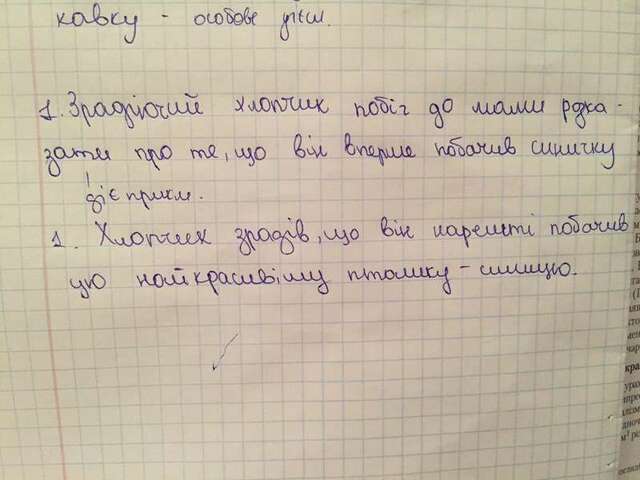 кавку - особове дієсл.
1. Зрадіючий хлопчик побіг до мами розка-
зати про те, що він вперше побачив синичку
дієприкм.
1. Хлопчик зрадів, що він нарешті побачив
цю найкрасивішу пташку - синицю.